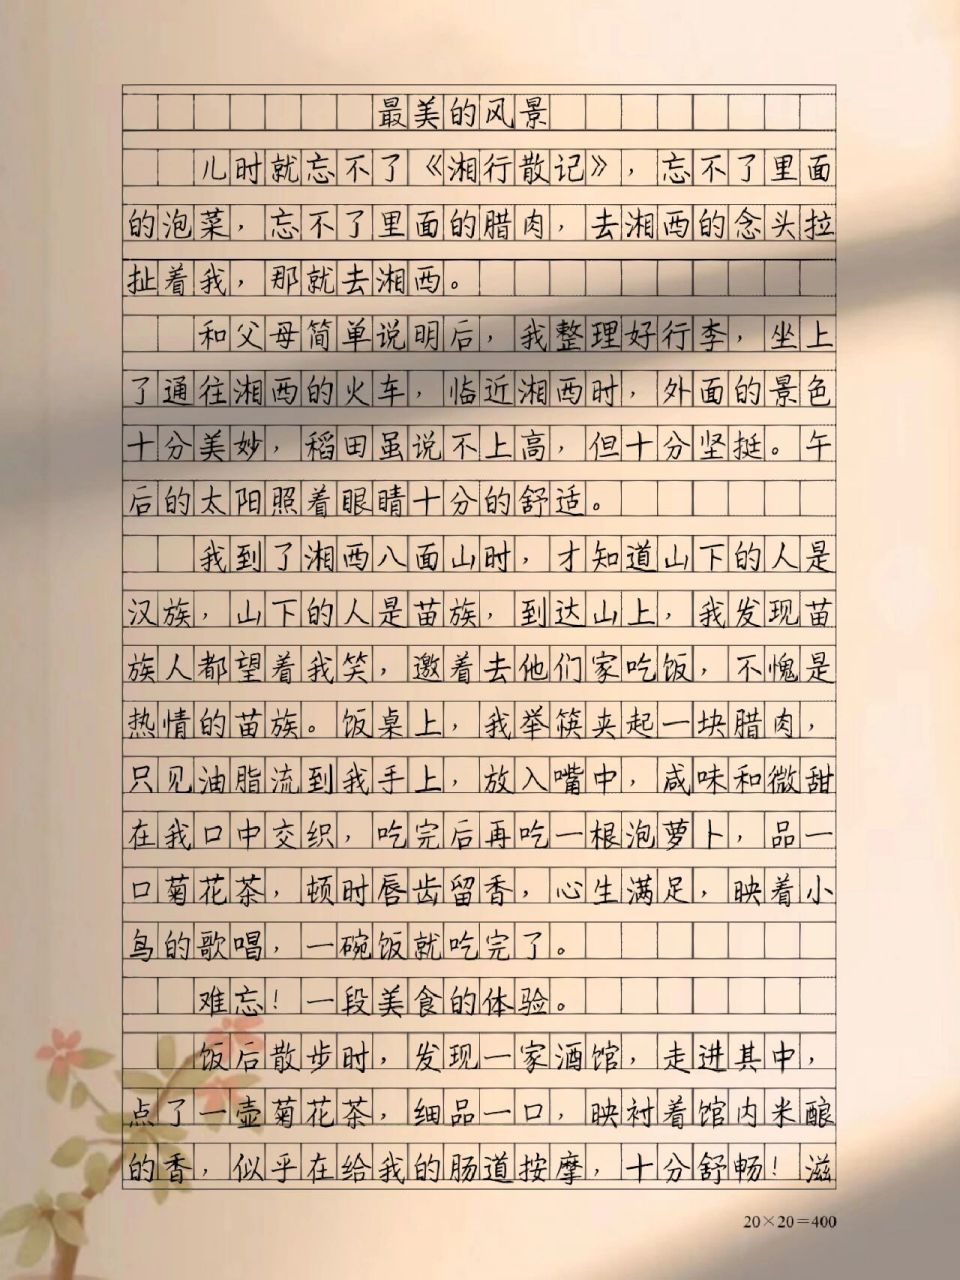 最美的风景
儿时就忘不了《湘行散记》，忘不了里面
的泡菜，忘不了里面的腊肉，去湘西的念头拉
扯着我，那就去湘西。
和父母简单说明后，我整理好行李，坐上
了通往湘西的火车，临近湘西时，外面的景色
十分美妙，稻田虽说不上高，但十分坚挺。午
后的太阳照着眼睛十分的舒适。
我到了湘西八面山时，才知道山下的人是
汉族，山下的人是苗族，到达山上，我发现苗
族人都望着我笑，邀着去他们家吃饭，不愧是
热情的苗族。饭桌上，我举筷夹起一块腊肉，
只见油脂流到我手上，放入嘴中，咸味和微甜
在我口中交织，吃完后再吃一根泡萝卜，品一
口菊花茶，顿时唇齿留香，心生满足，映着小
鸟的歌唱，一碗饭就吃完了。
难忘！一段美食的体验。
饭后散步时，发现一家酒馆，走进其中，
点了一壶菊花茶，细品一口，映衬着馆内米酿
的香，似乎在给我的肠道按摩，十分舒畅！滋
20×20=400